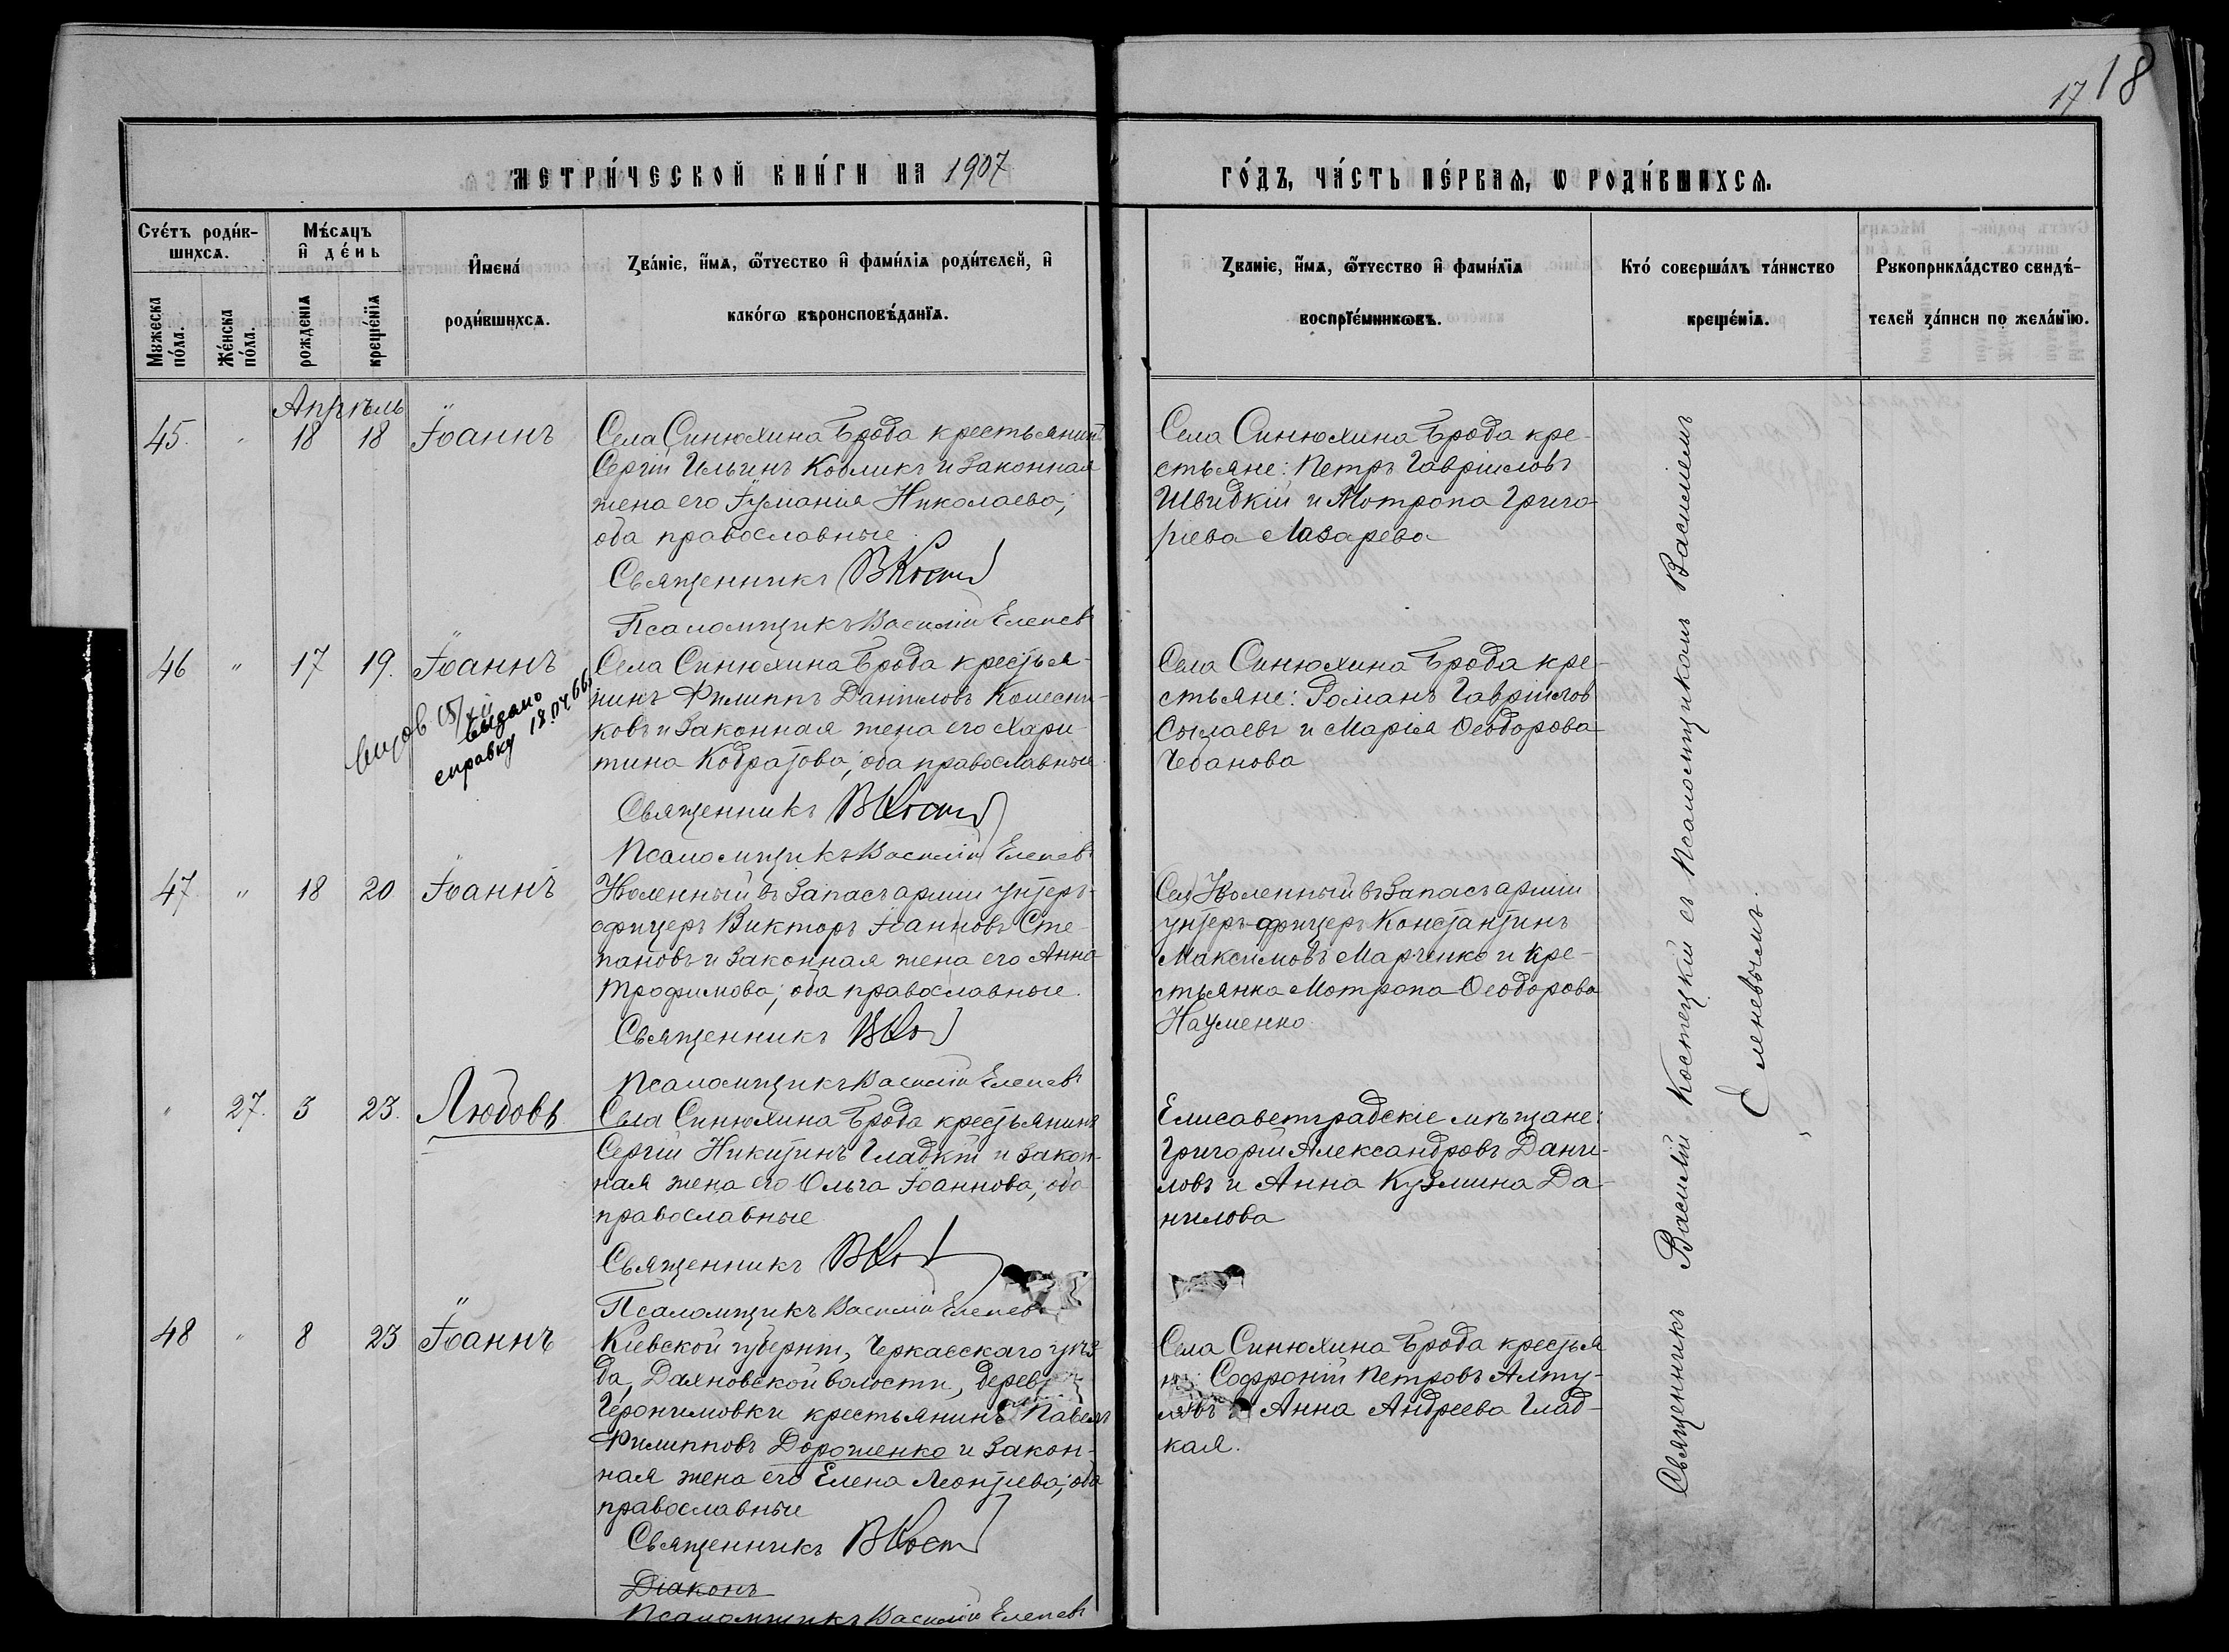 17 18
МЕТРИ́ЧЕСКОЙ КНИ́ГИ НА 1907
ГО́ДЪ, ЧА́СТЬ ПЕ́РВАѦ, Ѡ РОДИ́ВШИХСѦ.
Сче́тъ роди́в-
шихсѧ.
Мꙋжеска
по́ла.
Же́нска
по́ла.
Мѣ́сѧцъ
и҆ де́нь
рожденїѧ
креще́нїѧ
И҆мена́
роди́вшихсѧ.
Зва́нїе, и҆́мѧ, ѻ҆́тчество и҆ фами́лїѧ роди́телей, и҆
како́гѡ вѣроисповѣ́данїѧ.
Званїе, и҆́мѧ, ѻ҆́тчество и҆ фами́лїѧ
воспрїе́мникѡвъ.
Кто́ соверша́лъ та́инство
креще́нїѧ.
Рꙋкоприкла́дство свидѣ́-
телей за́писи по жела́нїю.
Апрѣль
45. " 18 18 Іоаннъ
Села Синюхина Брода крестьянинъ
Сергій Ильинъ Кобликъ и законная
жена его Іулианія Николаева;
оба православные.
Священникъ ВКост
Псаломщикъ Василій Еленевъ
Села Синюхина Брода кре-
стьяне: Петръ Гавріиловъ
Швидкій и Мотрона Григо-
ріева Лазарева
46 " 17 19. Іоаннъ
выдано
справку 18.04.66
Села Синюхина Брода крестья-
нинъ Филиппъ Даніиловъ Колесни-
ковъ и законная жена его Хари-
тина Кодратова; оба православные.
Священникъ ВКост
Псаломщикъ Василій Еленевъ
Села Синюхина Брода кре-
стьяне: Романъ Гавріилов
Сыпаевъ и Марія Ѳеодорова
Чебанова
47 " 18 20 Іоаннъ
Уволенный въ запасъ арміи унтеръ-
офицеръ Викторъ Іоанновъ Сте-
пановъ и законная жена его Анна
Трофимова; оба православные.
Священникъ ВКо
Псаломщикъ Василій Еленевъ
Уволенный въ запасъ арміи
унтеръ-офицеръ Константинъ
Максимовъ Марченко и кре-
стьянка Мотрона Ѳеодорова
Науменко
" 27. 3 23. Любовь
Села Синюхина Брода крестьянинъ
Сергій Никитинъ Гладкій и закон-
ная жена его Ольга Іоаннова; оба
православные
Священникъ ВКо
Псаломщикъ Василій Еленевъ
Елисаветградскіе мѣщане:
Григорій Александровъ Дани-
ловъ и Анна Кузмина Да-
нилова
48 " 8 23 Іоаннъ
Кіевской губерніи, Черкасскаго уѣз-
да, Дахновской волости, дерев
Геронимовки крестьянинъ Павелъ
Филипповъ Дороженко и закон-
ная жена его Елена Леонтіева; оба
православные
Священникъ ВКост
Діаконъ
Псаломщикъ Василій Еленевъ
Села Синюхина Брода крестья
не: Софроній Петровъ Алту-
ховъ и Анна Андреева Глад-
кая.
Священникъ Василій Костецкій съ Псаломщикомъ Василіемъ
Еленевымъ.